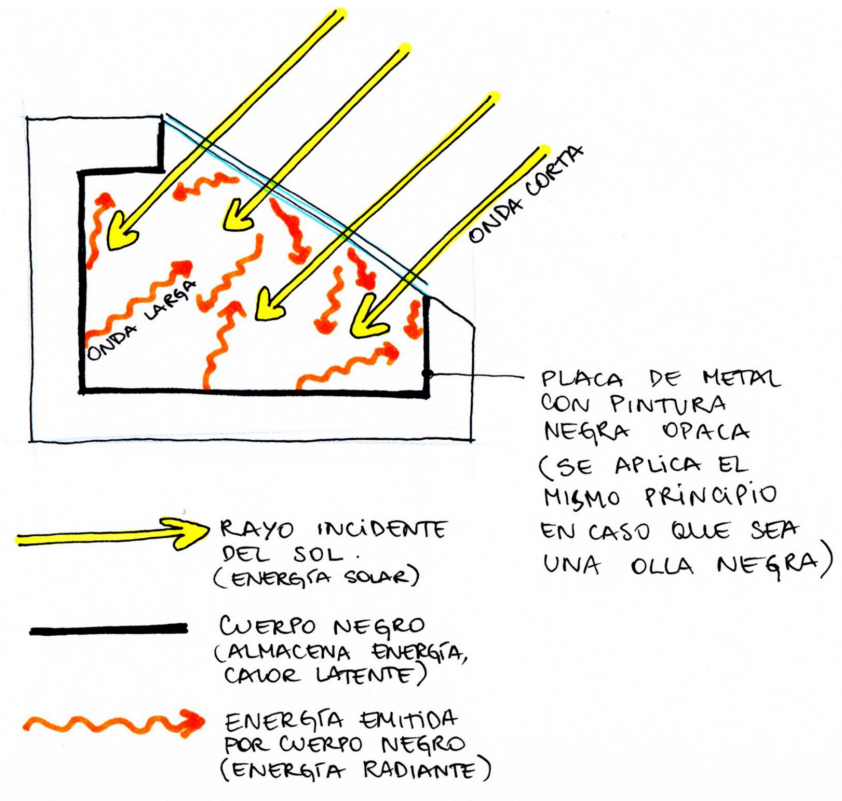 ONDA CORTA
ONDA LARGA
PLACA DE METAL
CON PINTURA
NEGRA OPACA
(SE APLICA EL
MISMO PRINCIPIO
EN CASO QUE SEA
UNA OLLA NEGRA)
RAYO INCIDENTE
DEL SOL.
(ENERGÍA SOLAR)
CUERPO NEGRO
(ALMACENA ENERGÍA,
CALOR LATENTE)
ENERGÍA EMITIDA
POR CUERPO NEGRO
(ENERGÍA RADIANTE)